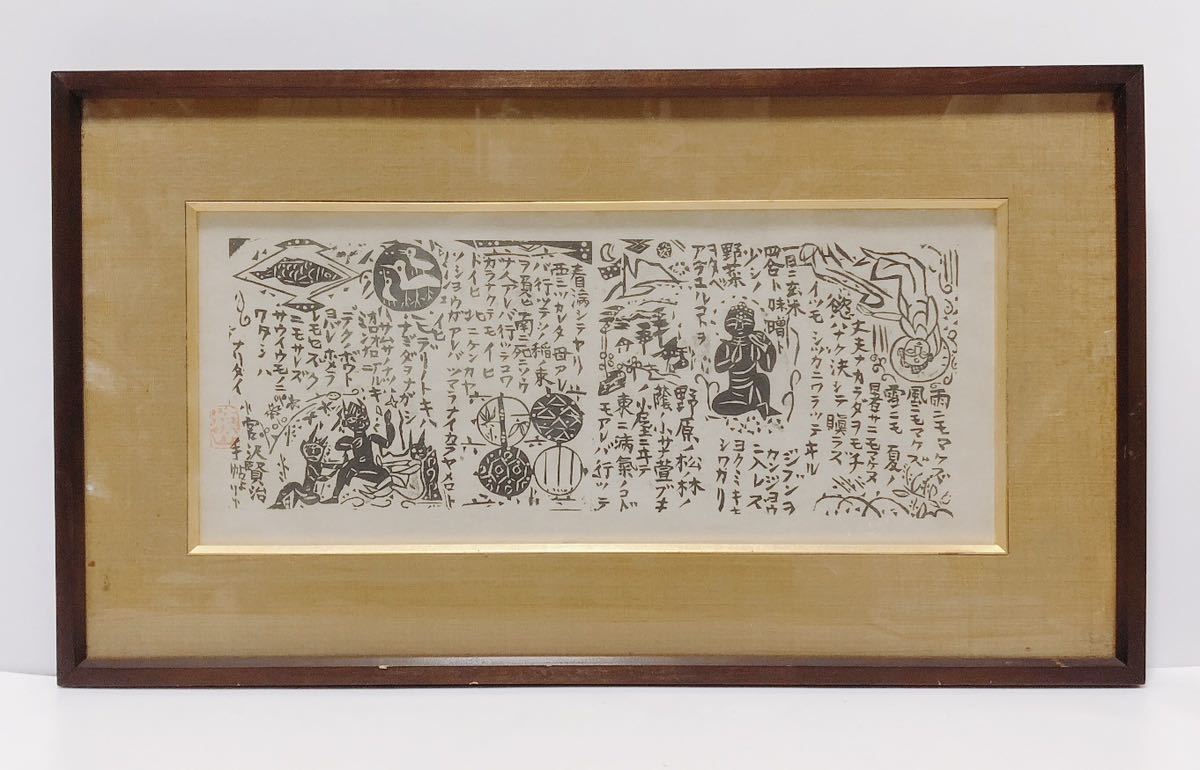 雨ニモマケズ
風ニモマケズ
雪ニモ夏ノ
暑サニモマケヌ
丈夫ナカラダヲモチ
慾ハナク決シテ瞋ラズ
イツモシヅカニワラッテヰル
一日ニ玄米
四合ト味噌
少シノ
野菜
ヲタベ
アラユルコトヲ
ジブンヲ
カンジョウ
ニ入レズ
ヨクミキキ
シワカリ
野原ノ松林ノ
蔭ノ小サナ萱ブキ
小屋ニヰテ
東ニ病氣ノコド
モアレバ行ッテ
看病シテヤリ
西ニツカレタ母アレ
バ行ッテソノ稲束
ヲ負ヒ南ニ死ニソウ
ナ人アレバ行ッテコワ
ガラナクテモイヒ
トイヒ北ニケンカヤ
ソショウガアレバツマラナイカラヤメロト
イヒ
ヒデリノトキハ
ナミダヲナガシ
サムサノナツハ
デクノボウト
ヨバレホメラ
レモセズク
ニモサレズ
サウイウモノニ
ワタシハ
ナリタイ
宮沢賢治